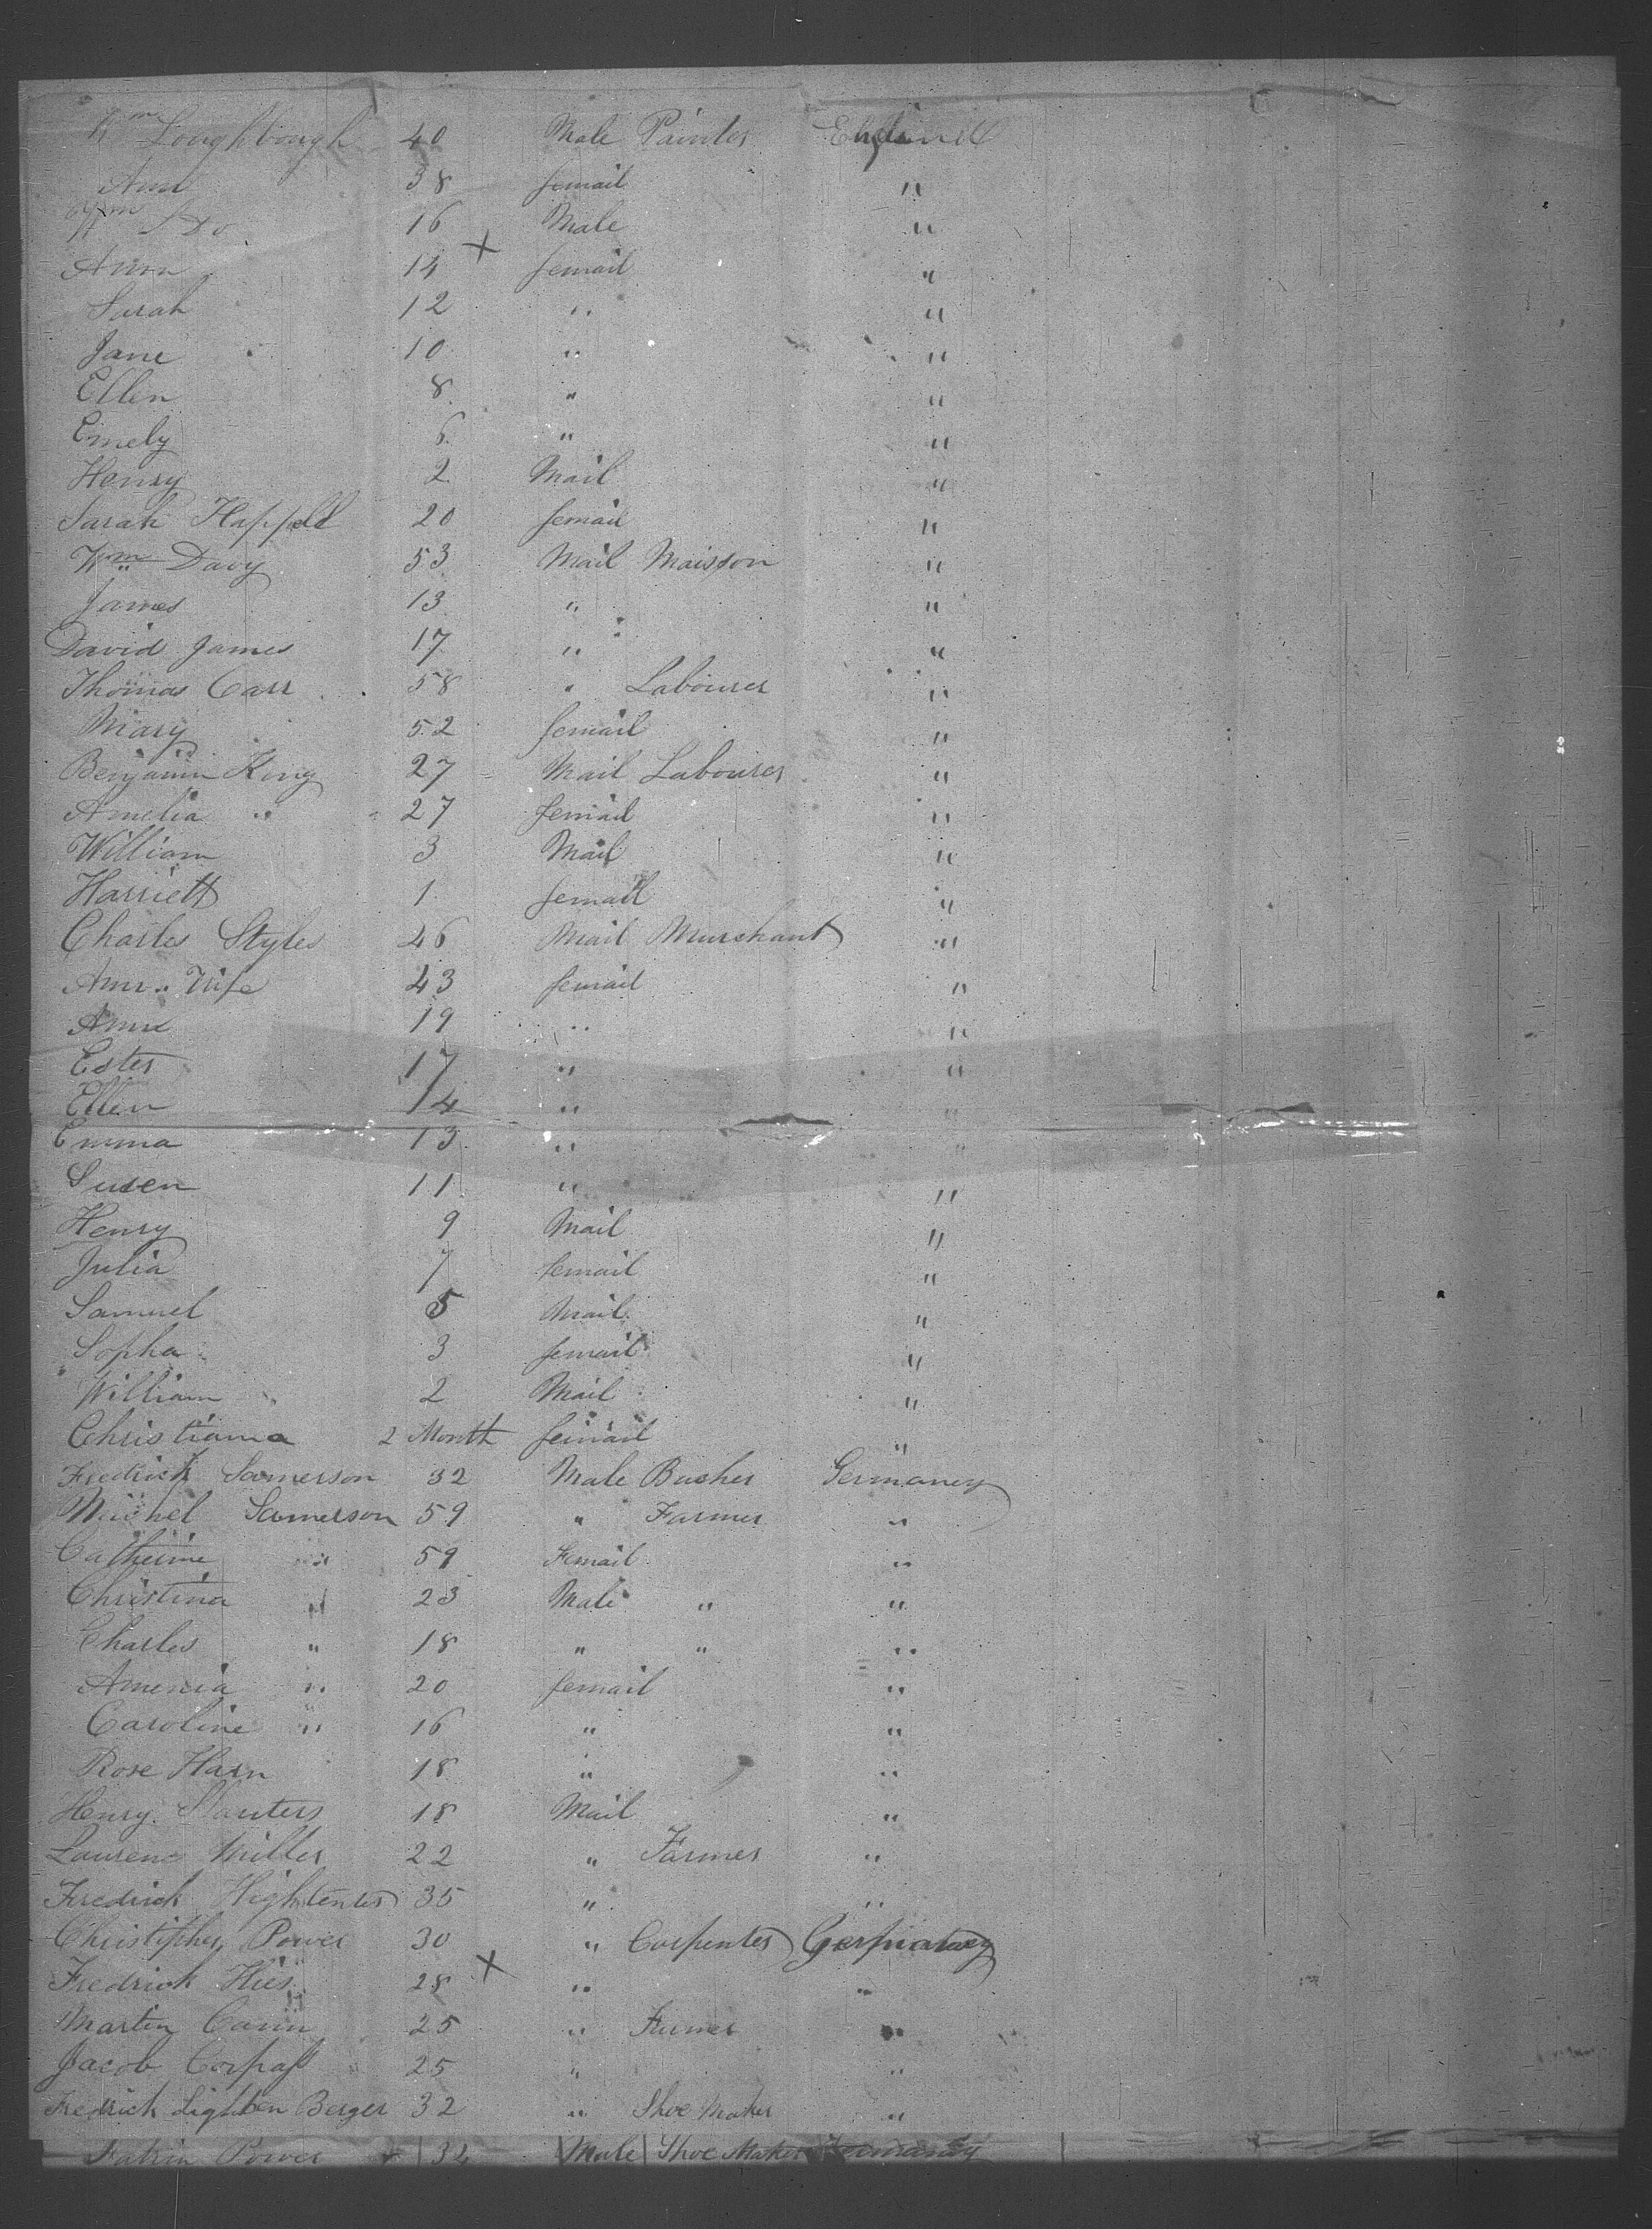 Wm Loughbough 40 Male Painter England
Ann 38 femail "
Wm Do 16 Male "
Ann 14 + femail "
Sarah 12 " "
Jane 10 " "
Ellen 8 " "
Emely 6 " "
Henry 2 Mail "
Sarah 20 femail "
Wm Davy 53 Mail Maisson "
James 13 " "
David James 17 " "
Thomas Carr 58 " Labourer "
Mary 52 femail "
Benjamin King 27 Mail Labourer "
Amelia " 27 femail "
William 3 Mail "
Harriett 1 femail "
Charles Styles 46 Mail Murchant "
Ann " Wife 43 femail "
Ann 19 " "
Ester 17 " "
Ellen 14 " "
Emma 13 " "
Susen 11 " "
Henry 9 Mail "
Julia 7 femail "
Samuel 5 Mail "
Sopha 3 femail "
William 2 Mail "
Christiama 2 Month femail "
Fredrick Samerson 32 Male Bucher Germaney
Michel Samerson 59 " Farmer "
Catherine " 59 Femail "
Christina " 23 Male " "
Charles " 18 " " "
Amenia " 20 femail "
Caroline " 16 " "
Rose Harn 18 " "
Henry 18 Mail "
Laurenc Miller 22 " Farmer "
Fredrick Hightenter 35 " "
Christipher Power 30 " Carpenter Germaney
Fredrick Hies 28 + " "
Martin Cann 25 " Furmer "
Jacob 25 " "
Fredrick Lighten Berger 32 " Shoe Maker "
Power 32 Male Shoe Maker Germaney